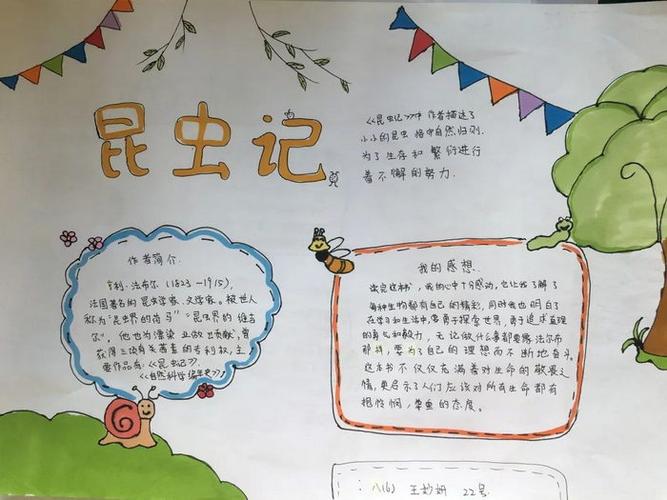 昆虫记
《昆虫记》中 作者描述了
小小的昆虫 恪守自然归则.
为了生存和 繁衍进行
着不懈的努力.
作者简介.
亨利·法布尔 (1823-1915),
法国著名的 昆虫学家、文学家。被世人
称为“昆虫界的荷马” “昆虫界的 维吉
尔”。他也为漂染 业做出贡献,曾
获得三项有关茜素的专利权,主
要作品有:《昆虫记》、
《自然科学编年史》
我的感想.
读完这本书,我的心中十分感动,它让我了解了
每种生物都有自己的精彩,同时我也 明白了
在学习和生活中,要勇于探索世界,勇于追求真理
的勇气和毅力,无论做什么事都要像法尔布
那样,要为了自己的 理想而不断地奋斗。
这本书不仅仅充 满着对生命的敬畏之
情,更启示了人们应该对所有生命都有
尊重的态度。
八(6) 王妙妍 22号